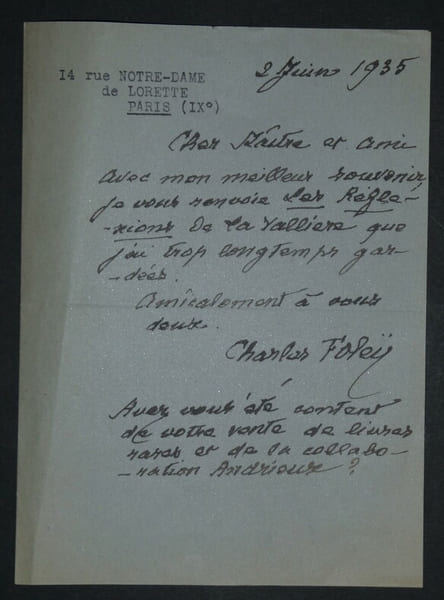 14 rue NOTRE-DAME
de LORETTE
PARIS (IX°)
2 Juin 1935
Cher Maître et ami
avec mon meilleur souvenir,
je vous renvoie Les Réfle-
-xions De La Vallière que
j'ai trop longtemps gar-
-dées.
Amicalement à vous
deux.
Charles Foleÿ
Avez vous été content
de votre vente de livres
rares et de la collabo-
-ration Andrieux ?